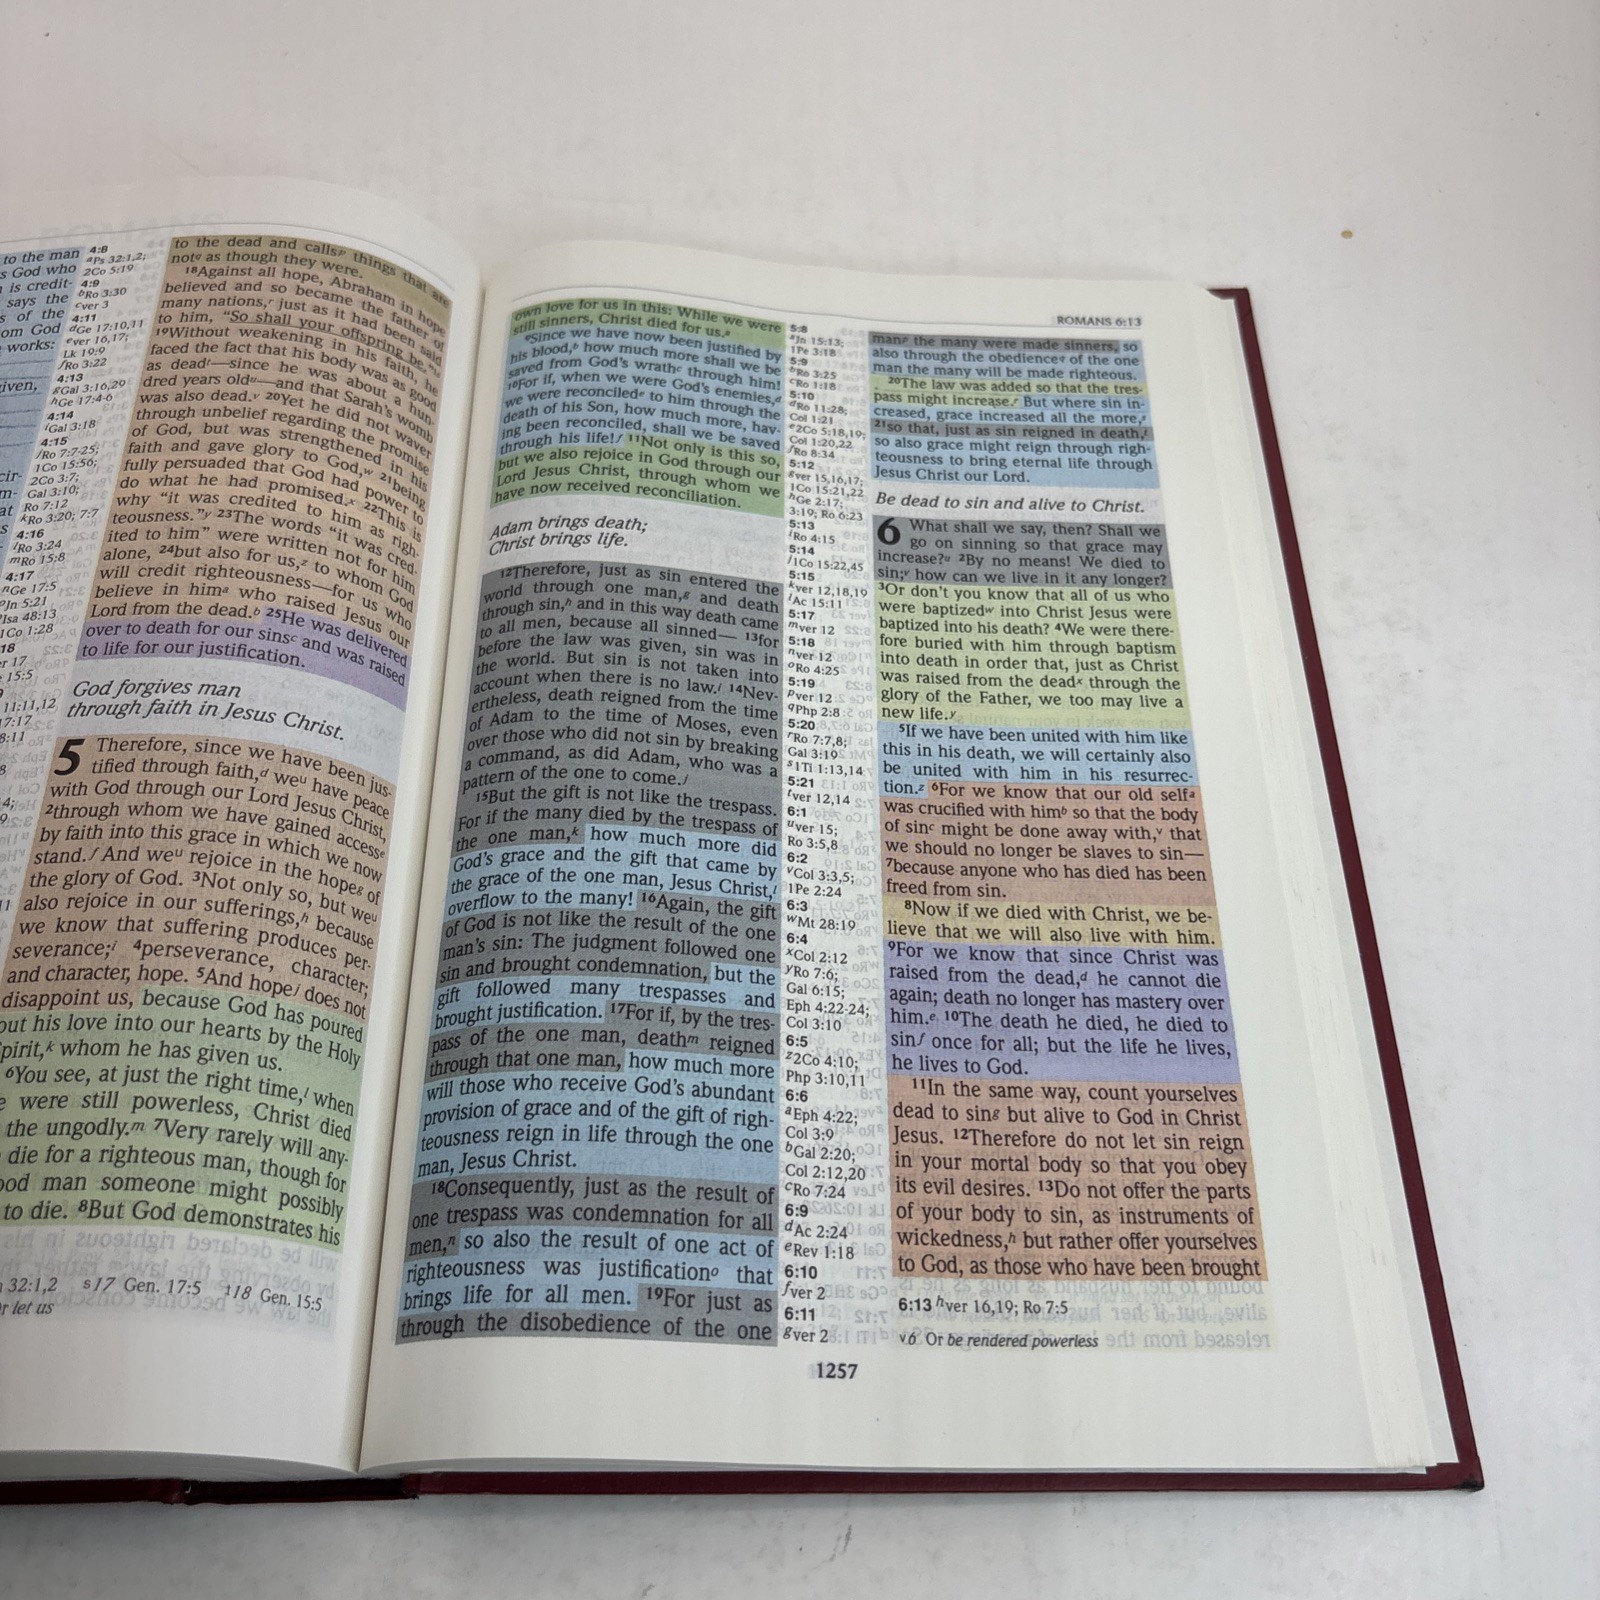 to the man
s God who
is credit-
says the
s of the
om God
works:
iven,
cir-
m-
at
4:8
aPs 32:1,2;
2Co 5:19
4:9
bRo 3:30
cver 3
4:11
dGe 17:10,11
ever 16,17;
Lk 19:9
fRo 3:22
4:13
gGal 3:16,29
hGe 17:4-6
4:14
iGal 3:18
4:15
jRo 7:7-25;
1Co 15:56;
2Co 3:7;
Gal 3:10;
Ro 7:12
kRo 3:20; 7:7
4:16
lRo 3:24
mRo 15:8
4:17
nGe 17:5
oJn 5:21
pIsa 48:13
1Co 1:28
18
er 17
15:5
11:11,12
7:17
8:11
to the dead and callsp things that are
notq as though they were.
18Against all hope, Abraham in hope
believed and so became the father of
many nations,r just as it had been said
to him, "So shall your offspring be."
19Without weakening in his faith, he
faced the fact that his body was as good
as deadt—since he was about a hun-
dred years oldu—and that Sarah's womb
was also dead.v 20Yet he did not waver
through unbelief regarding the promise
of God, but was strengthened in his
faith and gave glory to God,w 21being
fully persuaded that God had power to
do what he had promised.x 22This is
why "it was credited to him as righ-
teousness."y 23The words "it was cred-
ited to him" were written not for him
alone, 24but also for us,z to whom God
will credit righteousness—for us who
believe in hima who raised Jesus our
Lord from the dead.b 25He was delivered
over to death for our sinsc and was raised
to life for our justification.
God forgives man
through faith in Jesus Christ.
5 Therefore, since we have been jus-
tified through faith,d weu have peace
with God through our Lord Jesus Christ,
2through whom we have gained accesse
by faith into this grace in which we now
stand.f And weu rejoice in the hopeg of
the glory of God. 3Not only so, but weu
also rejoice in our sufferings,h because
we know that suffering produces per-
severance;i 4perseverance, character;
and character, hope. 5And hopej does not
disappoint us, because God has poured
out his love into our hearts by the Holy
pirit,k whom he has given us.
6You see, at just the right time,l when
e were still powerless, Christ died
the ungodly.m 7Very rarely will any-
die for a righteous man, though for
ood man someone might possibly
to die. 8But God demonstrates his
32:1,2 s17 Gen. 17:5 t18 Gen. 15:5
r let us
ROMANS 6:13
own love for us in this: While we were
still sinners, Christ died for us.a
9Since we have now been justified by
his blood,b how much more shall we be
saved from God's wrathc through him!
10For if, when we were God's enemies,d
we were reconcilede to him through the
death of his Son, how much more, hav-
ing been reconciled, shall we be saved
through his life!f 11Not only is this so,
but we also rejoice in God through our
Lord Jesus Christ, through whom we
have now received reconciliation.
Adam brings death;
Christ brings life.
12Therefore, just as sin entered the
world through one man,g and death
through sin,h and in this way death came
to all men, because all sinned— 13for
before the law was given, sin was in
the world. But sin is not taken into
account when there is no law.i 14Nev-
ertheless, death reigned from the time
of Adam to the time of Moses, even
over those who did not sin by breaking
a command, as did Adam, who was a
pattern of the one to come.j
15But the gift is not like the trespass.
For if the many died by the trespass of
the one man,k how much more did
God's grace and the gift that came by
the grace of the one man, Jesus Christ,l
overflow to the many! 16Again, the gift
of God is not like the result of the one
man's sin: The judgment followed one
sin and brought condemnation, but the
gift followed many trespasses and
brought justification. 17For if, by the tres-
pass of the one man, deathm reigned
through that one man, how much more
will those who receive God's abundant
provision of grace and of the gift of righ-
teousness reign in life through the one
man, Jesus Christ.
18Consequently, just as the result of
one trespass was condemnation for all
men,n so also the result of one act of
righteousness was justificationo that
brings life for all men. 19For just as
through the disobedience of the one
5:8
aJn 15:13;
1Pe 3:18
5:9
bRo 3:25
cRo 1:18
5:10
dRo 11:28;
Col 1:21
e2Co 5:18,19;
Col 1:20,22
fRo 8:34
5:12
gver 15,16,17;
1Co 15:21,22
hGe 2:17;
3:19; Ro 6:23
5:13
iRo 4:15
5:14
j1Co 15:22,45
5:15
kver 12,18,19
lAc 15:11
5:17
mver 12
5:18
nver 12
oRo 4:25
5:19
pver 12
qPhp 2:8
5:20
rRo 7:7,8;
Gal 3:19
s1Ti 1:13,14
5:21
tver 12,14
6:1
uver 15;
Ro 3:5,8
6:2
vCol 3:3,5;
1Pe 2:24
6:3
wMt 28:19
6:4
xCol 2:12
yRo 7:6;
Gal 6:15;
Eph 4:22-24;
Col 3:10
6:5
z2Co 4:10;
Php 3:10,11
6:6
aEph 4:22;
Col 3:9
bGal 2:20;
Col 2:12,20
cRo 7:24
6:9
dAc 2:24
eRev 1:18
6:10
fver 2
6:11
gver 2
manp the many were made sinners, so
also through the obedienceq of the one
man the many will be made righteous.
20The law was added so that the tres-
pass might increase.r But where sin in-
creased, grace increased all the more,s
21so that, just as sin reigned in death,t
so also grace might reign through righ-
teousness to bring eternal life through
Jesus Christ our Lord.
Be dead to sin and alive to Christ.
6 What shall we say, then? Shall we
go on sinning so that grace may
increase?u 2By no means! We died to
sin;v how can we live in it any longer?
3Or don't you know that all of us who
were baptizedw into Christ Jesus were
baptized into his death? 4We were there-
fore buried with him through baptism
into death in order that, just as Christ
was raised from the deadx through the
glory of the Father, we too may live a
new life.y
5If we have been united with him like
this in his death, we will certainly also
be united with him in his resurrec-
tion.z 6For we know that our old selfa
was crucified with himb so that the body
of sinc might be done away with,v that
we should no longer be slaves to sin—
7because anyone who has died has been
freed from sin.
8Now if we died with Christ, we be-
lieve that we will also live with him.
9For we know that since Christ was
raised from the dead,d he cannot die
again; death no longer has mastery over
him.e 10The death he died, he died to
sinf once for all; but the life he lives,
he lives to God.
11In the same way, count yourselves
dead to sing but alive to God in Christ
Jesus. 12Therefore do not let sin reign
in your mortal body so that you obey
its evil desires. 13Do not offer the parts
of your body to sin, as instruments of
wickedness,h but rather offer yourselves
to God, as those who have been brought
6:13 hver 16,19; Ro 7:5
v6 Or be rendered powerless
1257